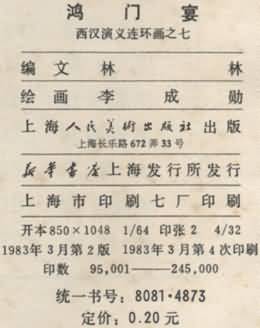 鸿门宴
西汉演义连环画之七
编文林林
绘画李成勋
上海人民美术出版社出版
上海长乐路672弄33号
新华书店上海发行所发行
上海市印刷七厂印刷
开本850×1048 1/64 印张2 4/32
1983年3月第2版 1983年3月第4次印刷
印数 95,001——245,000
统一书号：8081·4873
定价：0.20元